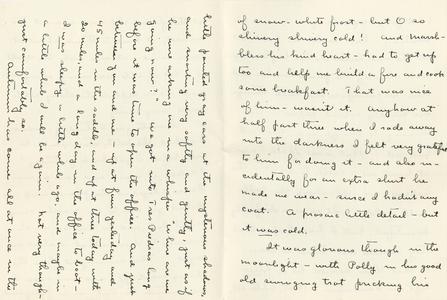 of snow-white frost - but O so
shivery shivery cold! and Marsh -
bless his kind heart - had to get up
too and help me build a fire and cook
some breakfast. That was nice
of him - wasn't it. Anyhow at
half past three when I rode away
into the darkness I felt very grateful
to him for doing it - and also in-
cidentally for an extra shirt he
made me wear - since I hadn't any
coat. A prosaic little detail - but
it was cold.
It was glorious though in the
moonlight - with Polly in his good
old swinging trot pricking his
little pointed gray ears at the mysterious shadows,
and snorting very softly and gently, just as if
he were asking me in a whisper "where are we
going now?" We got into Tres Piedras long
before it was time to open the office. And just
between you and me - up at five yesterday and
45 miles in the saddle, and up at three today with
20 miles, and a long day in the office to boot -
I was sleepy a little while ago, and maybe in
a little while I will be again. Not very though -
just comfortably so.
Autumn has come all at once in the